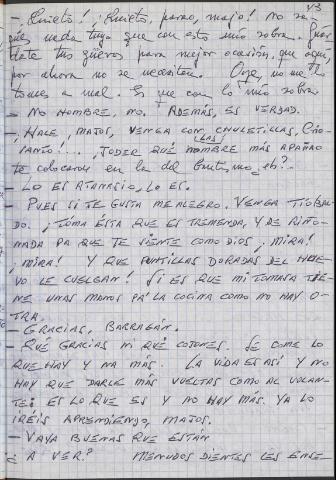 13
- ¡Quieto! ¡Quieto, paño, majo! No sa-
ques nada tuyo que con esto mío sobra. Guar-
date tus güevos para mejor ocasión, que aquí,
por ahora no se necesitan. Oye, no me lo
tomes a mal. Es que con lo mío sobra.
- NO HOMBRE, NO. ADEMÁS, ES VERDAD.
- ¡HALE, MAJOS, VENGA CON CHULETILLAS,
¡... ¡JODER QUÉ NOMBRE MÁS APAÑAO
te colocaron en la del bautismo, eh?
- LO ES ATANASIO, LO ES.
- PUES SI TE GUSTA ME ALEGRO. VENGA TÍO
¡TOMA ESTA QUE ES TREMENDA, Y DE RIÑO-
NADA PA QUE TE SIENTE COMO DIOS, ¡MIRA!
¡MIRA! Y QUE PUNTILLAS DORADAS DEL HUE-
VO LE CUELGAN! SI ES QUE MI TOMASA TIE-
NE UNAS MANOS PA' LA COCINA COMO NO HAY O-
TRA.
- GRACIAS, BARRAGÁN.
- QUÉ GRACIAS NI QUÉ COJONES. SE COME LO
QUE HAY Y NA MÁS. LA VIDA ES ASÍ Y NO
HAY QUE DARLE MÁS VUELTAS COMO AL VOLAN-
TE: ES LO QUE ES Y NO HAY MÁS. YA LO
IRÉIS APRENDIENDO, MAJOS.
- VAYA BUENAS QUE ESTÁN
¿A VER? MENUDOS DIENTES LES ENSE-